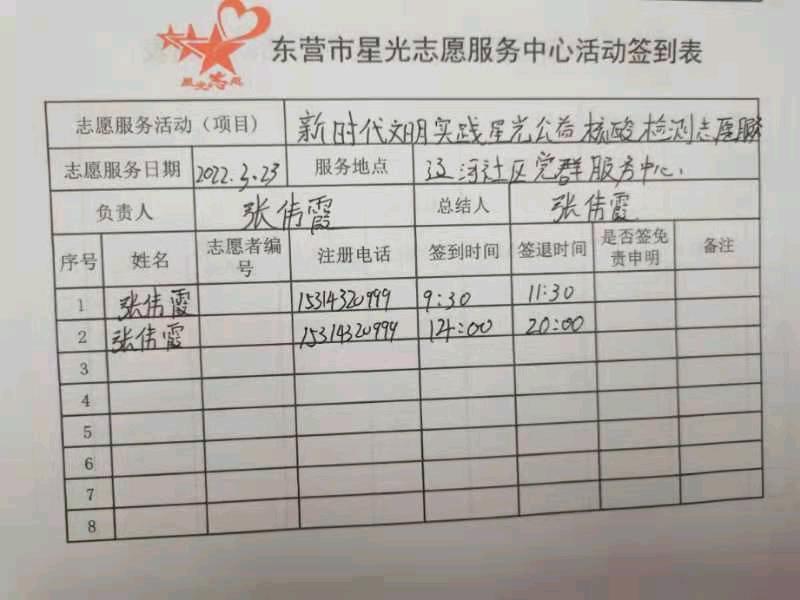 星光志愿
东营市星光志愿服务中心活动签到表
志愿服务活动（项目） 新时代文明实践星光公益核酸检测志愿服务
志愿服务日期 2022.3.23 服务地点 辽河社区党群服务中心.
负责人 张伟霞 总结人 张伟霞
序号 姓名 志愿者编号 注册电话 签到时间 签退时间 是否签免责申明 备注
1 张伟霞 15314320999 9:30 11:30
2 张伟霞 15314320999 14:00 20:00
3
4
5
6
7
8